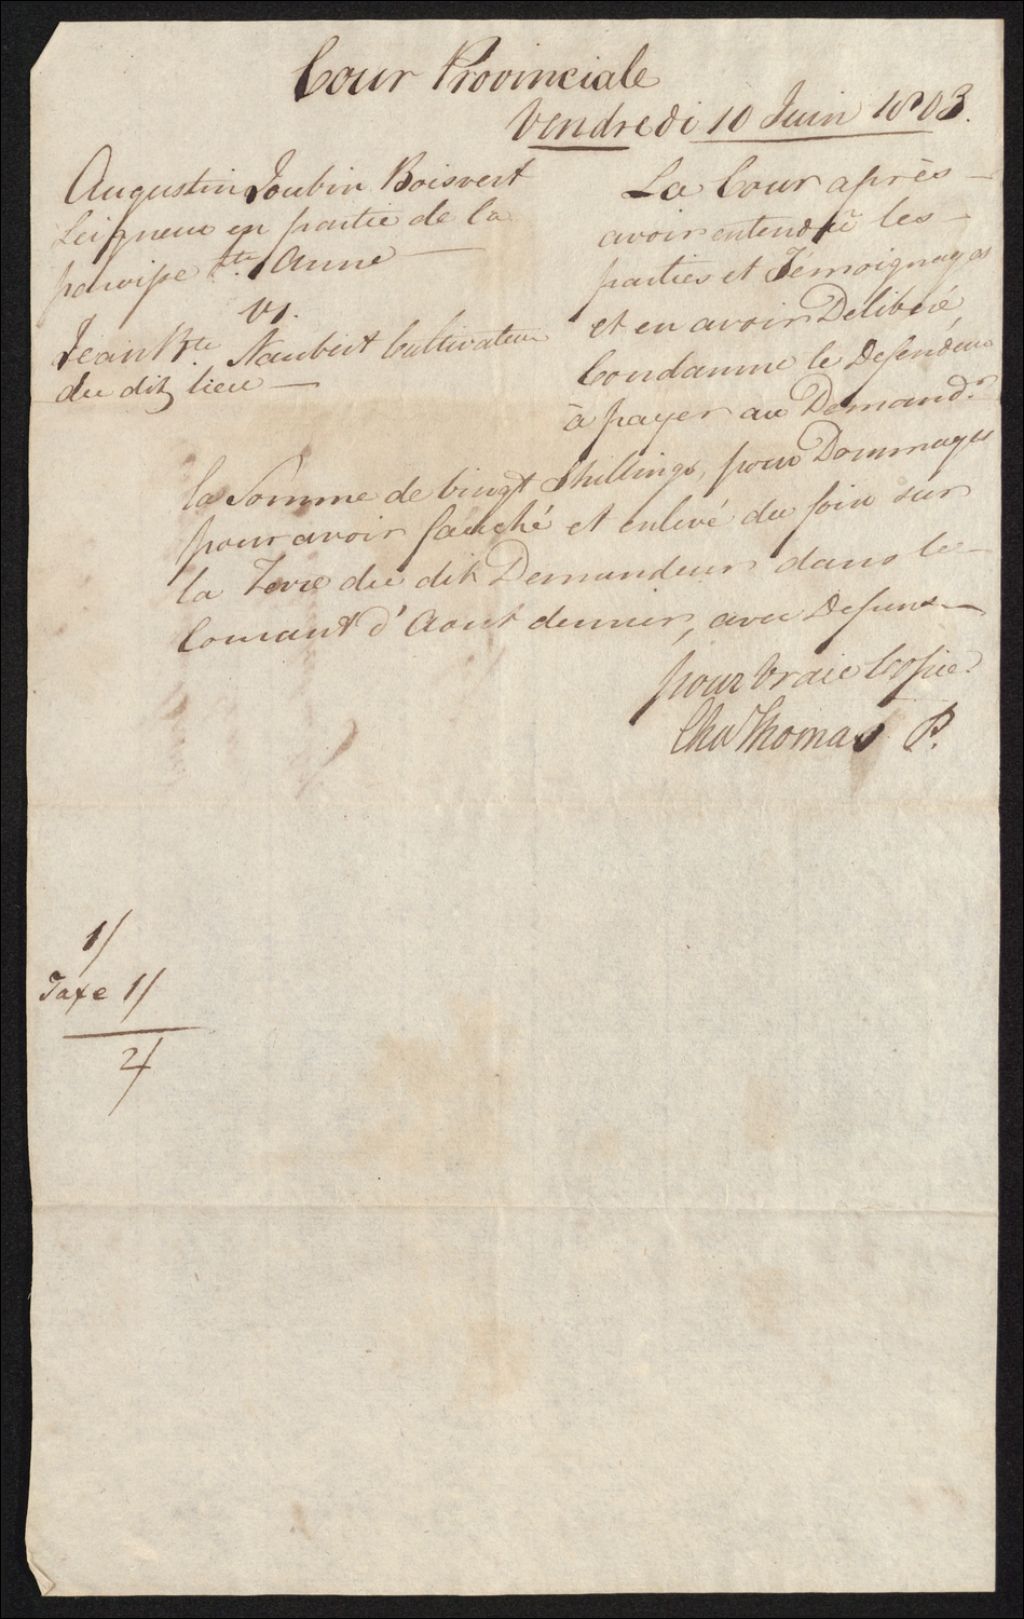 Cour Provinciale
Vendredi 10 Juin 1803.
Augustin Joubin Boisvert
Seigneur en partie de la
paroisse Ste. Anne
vs.
Jean Bte. Naubert Cultivateur
du dit lieu
La Cour après
avoir entendû les
parties et Témoignages
et en avoir Déliberé,
Condamne le Defendeur
à payer au Demandr.
la Somme de vingt Shillings, pour Dommages
pour avoir fauché et enlevé du foin sur
la Terre du dit Demandeur dans le
Courant d'Aout dernier, avec Depens
pour Vraie Copie
Chs Thomas P.
1/
Taxe 1/
2/